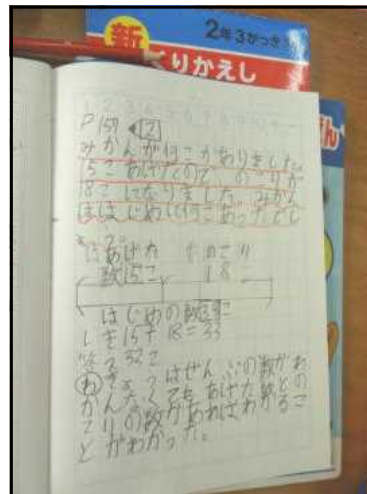 2年3がっき
新
くりかえし
P159 ◀2
みかんが何こかありました。
15こあげたので のこりが
18こになりました。みかん
はははじめに何こあったでし
あげた のこり
数15こ 18
はじめの数33こ
しき15+18=33
答え 33こ
わ きょうはぜんぶの数がわ
からなくてもあげた数との
こりの数があればわかるこ
とがわかった。